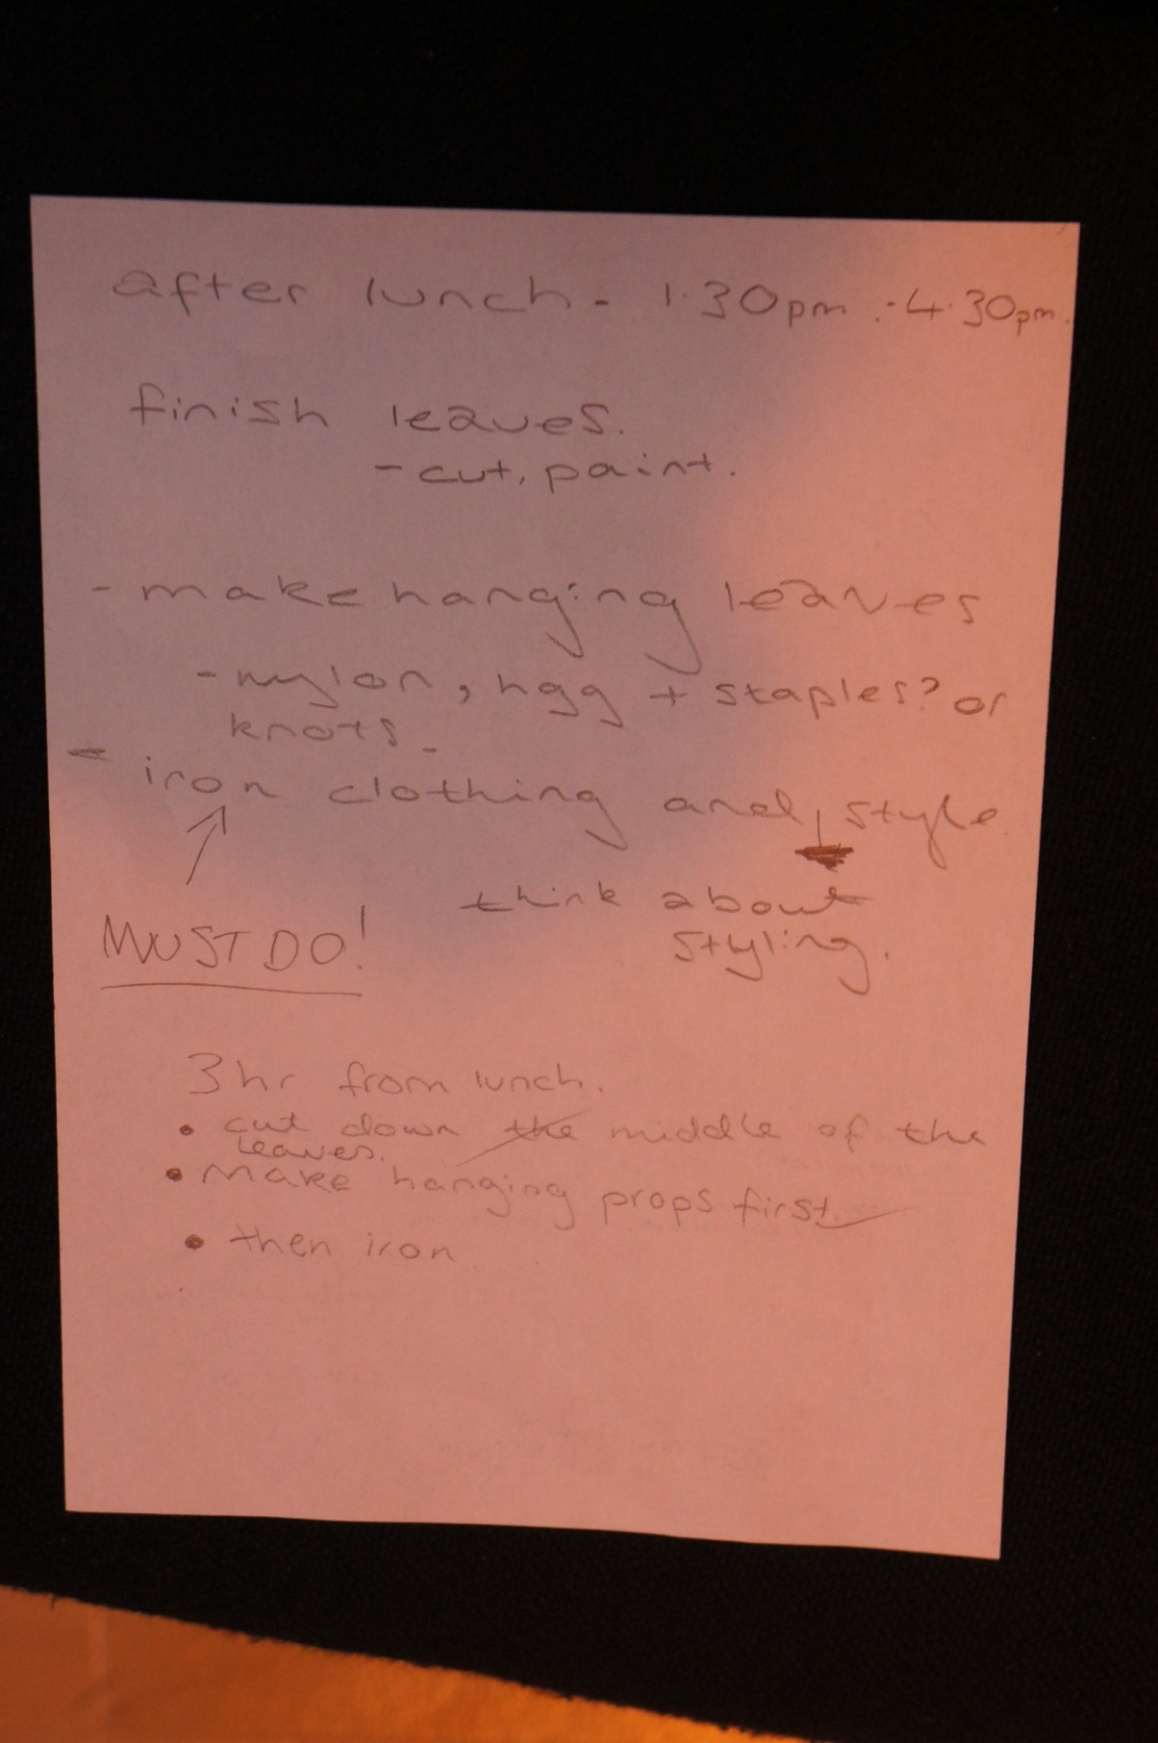 after lunch - 1.30pm - 4.30pm.
finish leaves.
- cut, paint.
- make hanging leaves
- nylon, hgg + staples? or
knots -
- iron clothing and style
think about
MUST DO!
styling.
3hr from lunch.
• cut down the middle of the
leaves.
• Make hanging props first
• then iron